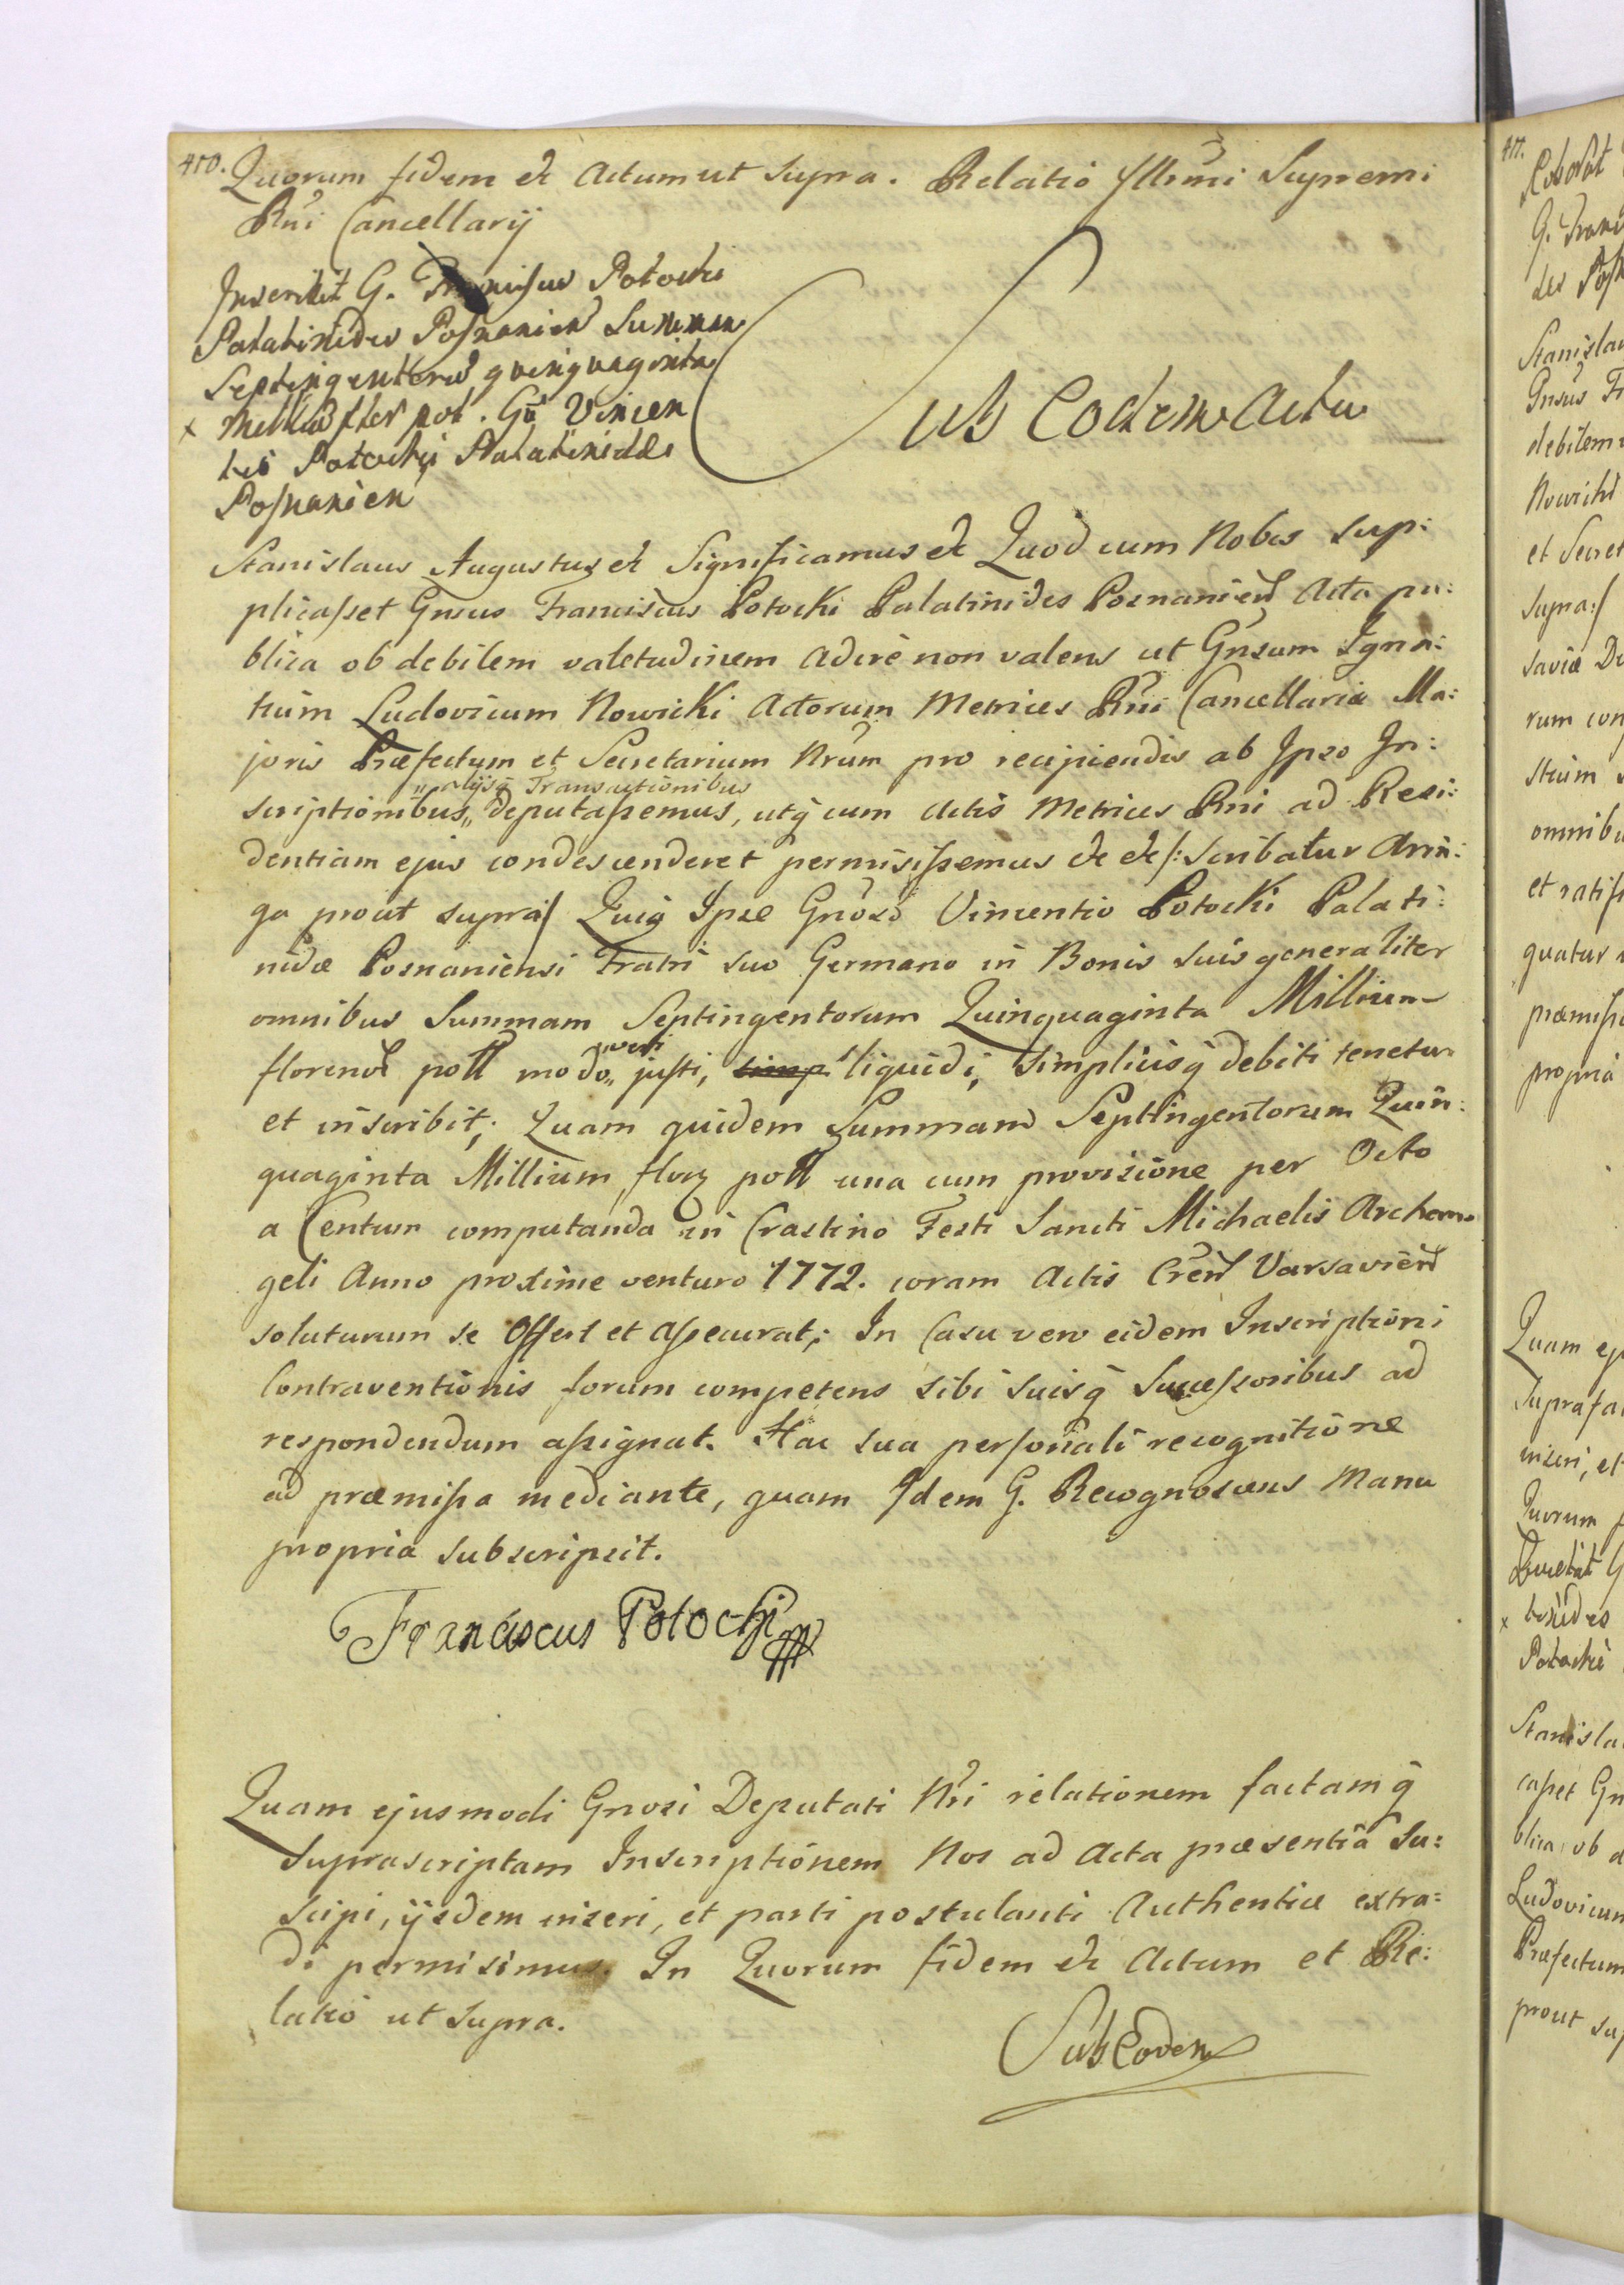 410. Quorum fidem &c Actum ut supra. Relatio Illrmi Supremi
Rni Cancellarij
Inscribit G. Franciscus Potocki
Palatinides Posnanien Summam
Septingentorum quinquaginta
x mille flor pol. Go Vincen
tio Potocki Palatinidae
Posnanien
Sub Eodem Actu
Stanislaus Augustus &c Significamus &c Quod cum Nobis sup:
plicasset Gnsus Franciscus Potocki Palatinides Posnanien Acta pu:
blica ob debilem valetudinem adire non valens ut Gnsum Igna:
tium Ludovicum Nowicki Actorum Metrices Rni Cancellariæ Ma:
joris Præfectum et Secretarium Nrum pro recipiendis ab Ipso In:
„alijsq Transactionibus
scriptionibus„ deputassemus, utq cum Actis Metrices Rni ad Resi:
dentiam ejus condescenderet permisissemus &c &c /: Scribatur Arin:
ga prout supra/ Quiq Ipse Gnoso Vincentio Potocki Palati:
nidæ Posnaniensi Fratri suo Germano in Bonis suis generaliter
omnibus Summam Septingentorum Quinquaginta Millium
„veri
florenor poll modo„ justi, simp liquidi, simplicisq debiti tenetur
et inscribit; Quam quidem Summam Septingentorum Quin:
quaginta Millium flor poll una cum provisione per Octo
a Centum computanda in Crastino Festi Sancti Michaelis Archan=
geli Anno proxime venturo 1772. coram Actis Cren Varsavien
soluturum se Offert et assecurat; In Casu vero eidem Inscriptioni
Contraventionis forum competens sibi suisq Successoribus ad
respondendum assignat. Hac sua personali recognitione
ad præmissa mediante, quam Idem G. Recognoscens Manu
propria subscripsit.
Franciscus Potocki
Quam ejusmodi Gnosi Deputati Nri relationem factamq
Suprascriptam Inscriptionem Nos ad Acta præsentia Su:
scipi, ijsdem inseri, et parti postulanti Authentice extra:
di permisimus. In Quorum fidem &c Actum et Re:
latio ut supra.
Sub Eodem